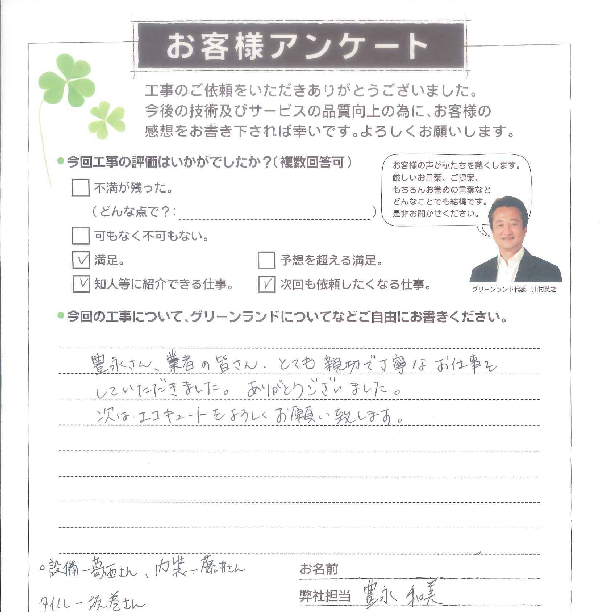 お客様アンケート
工事のご依頼をいただきありがとうございました。
今後の技術及びサービスの品質向上の為に、お客様の
感想をお書き下されば幸いです。よろしくお願いします。
●今回工事の評価はいかがでしたか?(複数回答可)
不満が残った。
(どんな点で?: )
可もなく不可もない。
✓満足。
予想を超える満足。
✓知人等に紹介できる仕事。
✓次回も依頼したくなる仕事。
お客様の声が私たちを熱くします。
厳しいお言葉、ご提案、
もちろんお褒めの言葉など
どんなことでも結構です。
是非お聞かせください。
グリーンランド代表
●今回の工事について、グリーンランドについてなどご自由にお書きください。
豊永さん、業者の皆さん、とても親切で丁寧なお仕事を
していただきました。ありがとうございました。
次はエコキュートをよろしくお願い致します。
○設備-葛西さん、内装-藤井さん
タイル-
お名前
弊社担当 豊永 和美